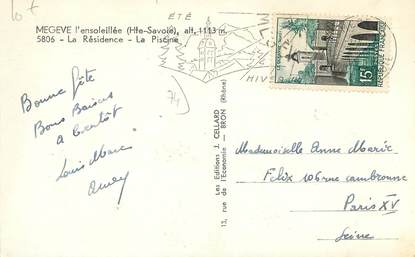 10 F
MEGEVE l'ensoleillée (Hte-Savoie), alt. 1113 m.
5806 - La Résidence - La Piscine
ÉTÉ
HIV
15F
REPUBLIQUE FRANÇAISE
74
Bonne fête
Bons Baisers
a bientôt
Louis Marc
Les Editions J. CELLARD
13, rue de l'Economie - BRON (Rhône)
Mademoiselle Anne Marie
Felix 106 rue cambronne
Paris XV
Seine